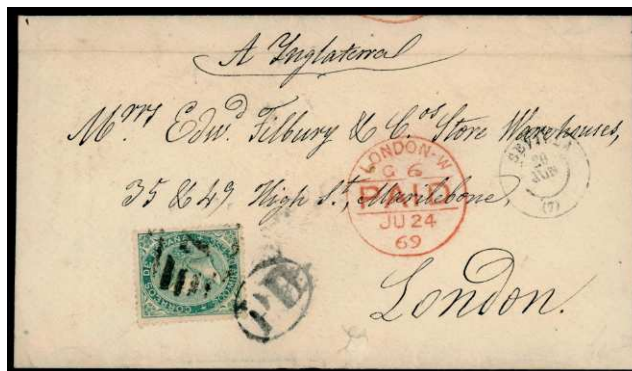 A Inglaterra
Mrrs Edwd Tilbury & Cos Store Warehouses,
35 & 49 High St, Marilebone,
London.
LONDON-W
G 6
PAID
JU 24
69
SEVILLA
20
JUN
(7)
CORREOS DE ESPAÑA
PD